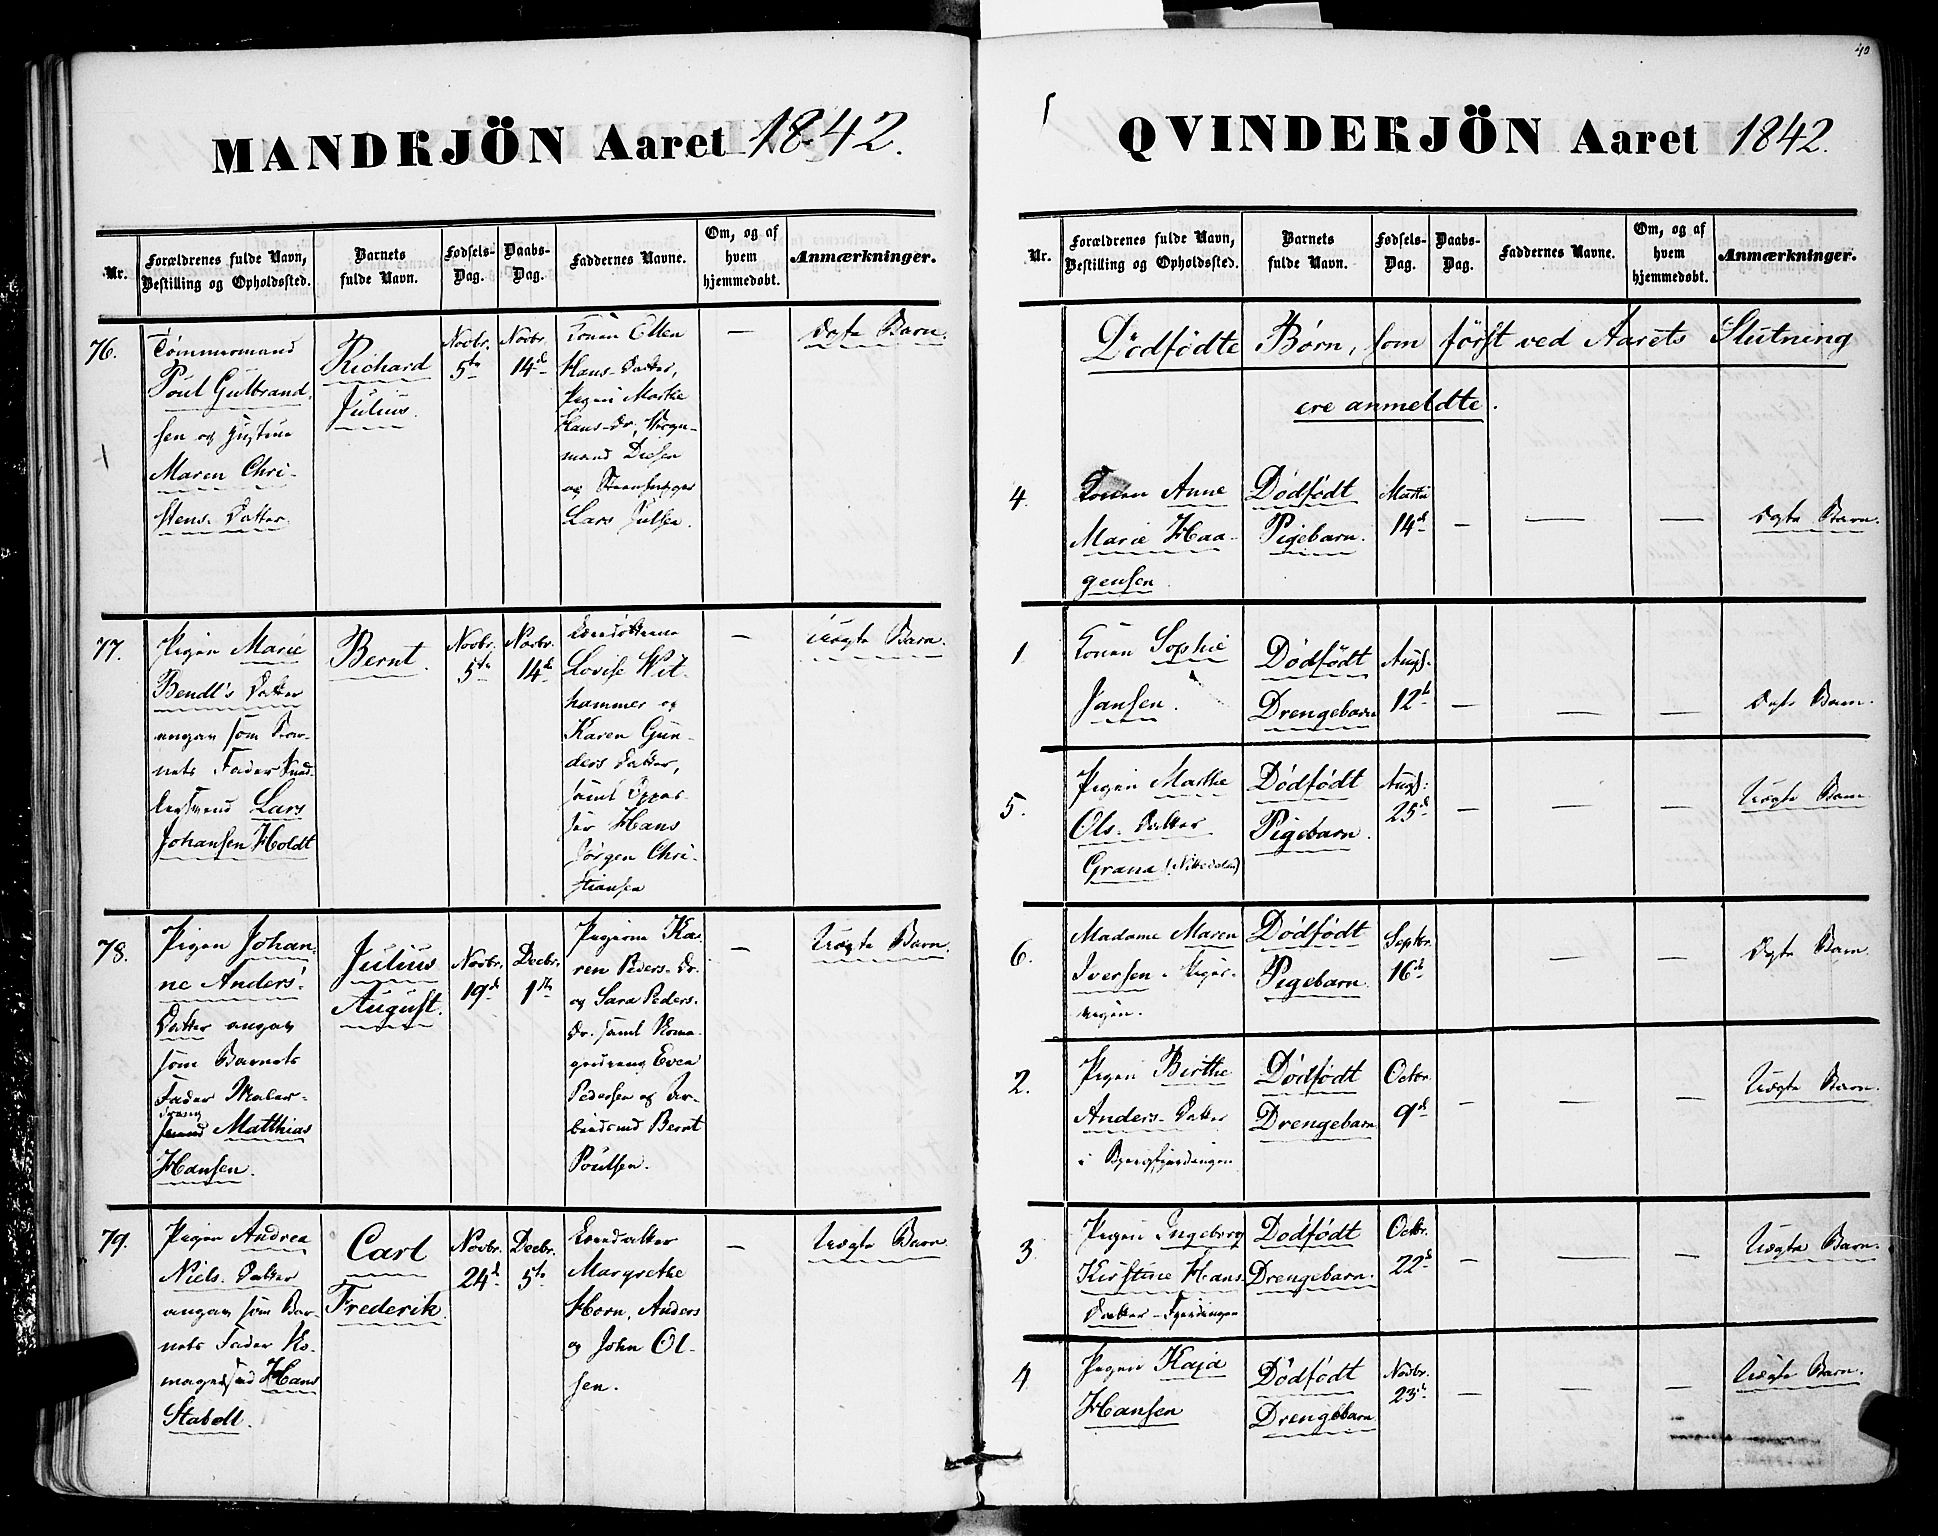 40
MANDKJÖN Aaret 1842.
Nr.
Forældrenes fulde Navn,
Bestilling og Opholdssted.
Barnets
fulde Navn.
Fødsels-
Dag.
Daabs-
Dag.
Faddernes Navne.
Om, og af
hvem
hjemmedøbt.
Anmærkninger.
76.
Tømmermand
Poul Gulbrand
sen og Hustrue
Maren Chri-
stens-Datter
Richard
Julius.
Novbr.
5te
Novbr.
14d
Konen Ellen
Hans-Datter,
Pigen Marthe
Hans-Dr,
mand
og
Lars Julsen.
—
Ægte Barn.
77.
Pigen Marie
Bendt's Datter
angav som Bar-
nets Fader
Lars
Johansen Holdt
Bernt.
Novbr.
5te
Novbr.
14d
Lovise Wil-
hammer og
Karen Gun-
ders Datter,
samt
Hans
Jörgen Chri-
stiansen
—
Uægte Barn.
78.
Pigen Johan-
ne Anders'
Datter angav
som Barnets
Fader Maler-
dreng
svend Matthias
Hansen.
Julius
August.
Novbr.
19d
Decbr.
1ste
Pigerne Ka-
ren Peders-Dr.
og Sara Peders-
Dr. samt
Even
Pedersen og Ar-
beidsmd Bernt
Poulsen.
—
Uægte Barn.
79.
Pigen Andrea
Niels-Datter
angav som Bar-
nets Fader
Hans
Stabell
Carl
Frederik
Novbr.
24d
Decbr.
5te
Margrethe
Horn, Anders
og John Ol-
sen.
—
Uægte Barn
QVINDEKJÖN Aaret 1842.
Nr.
Forældrenes fulde Navn,
Bestilling og Opholdssted.
Barnets
fulde Navn.
Fødsels-
Dag.
Daabs-
Dag.
Faddernes Navne.
Om, og af
hvem
hjemmedøbt.
Anmærkninger.
Dødfødte Børn, som först ved Aarets Slutning
ere anmeldte.
4.
Konen Anne
Marie Haa-
gensen
Dødfødt
Pigebarn.
Martii
14d
—
—
—
Ægte Barn.
1.
Konen Sophie
Jansen.
Dødfödt
Drengebarn
Augs.
12te
—
—
—
Ægte Barn.
5.
Pigen Marthe
Ols-Datter
Grana
Dødfödt
Pigebarn.
Augs:
25d
—
—
—
Uægte Barn
6.
Madame Maren
Iversen
Dödfödt
Pigebarn
Septbr.
16d
—
—
Ægte Barn.
2.
Pigen Birthe
Anders-Datter
i Bjergfjerdingen
Dödfödt
Drengebarn
Octbr.
9d
—
—
—
Uægte Barn.
3.
Pigen Ingeborg
Kirstine Hans
Datter - Fjerdingen
Dödfödt
Drengebarn.
Octbr.
22d
—
—
—
Uægte Barn.
4.
Pigen Kaja
Hansen
Dödfödt
Drengebarn
Novbr.
23d
—
—
—
Uægte Barn.